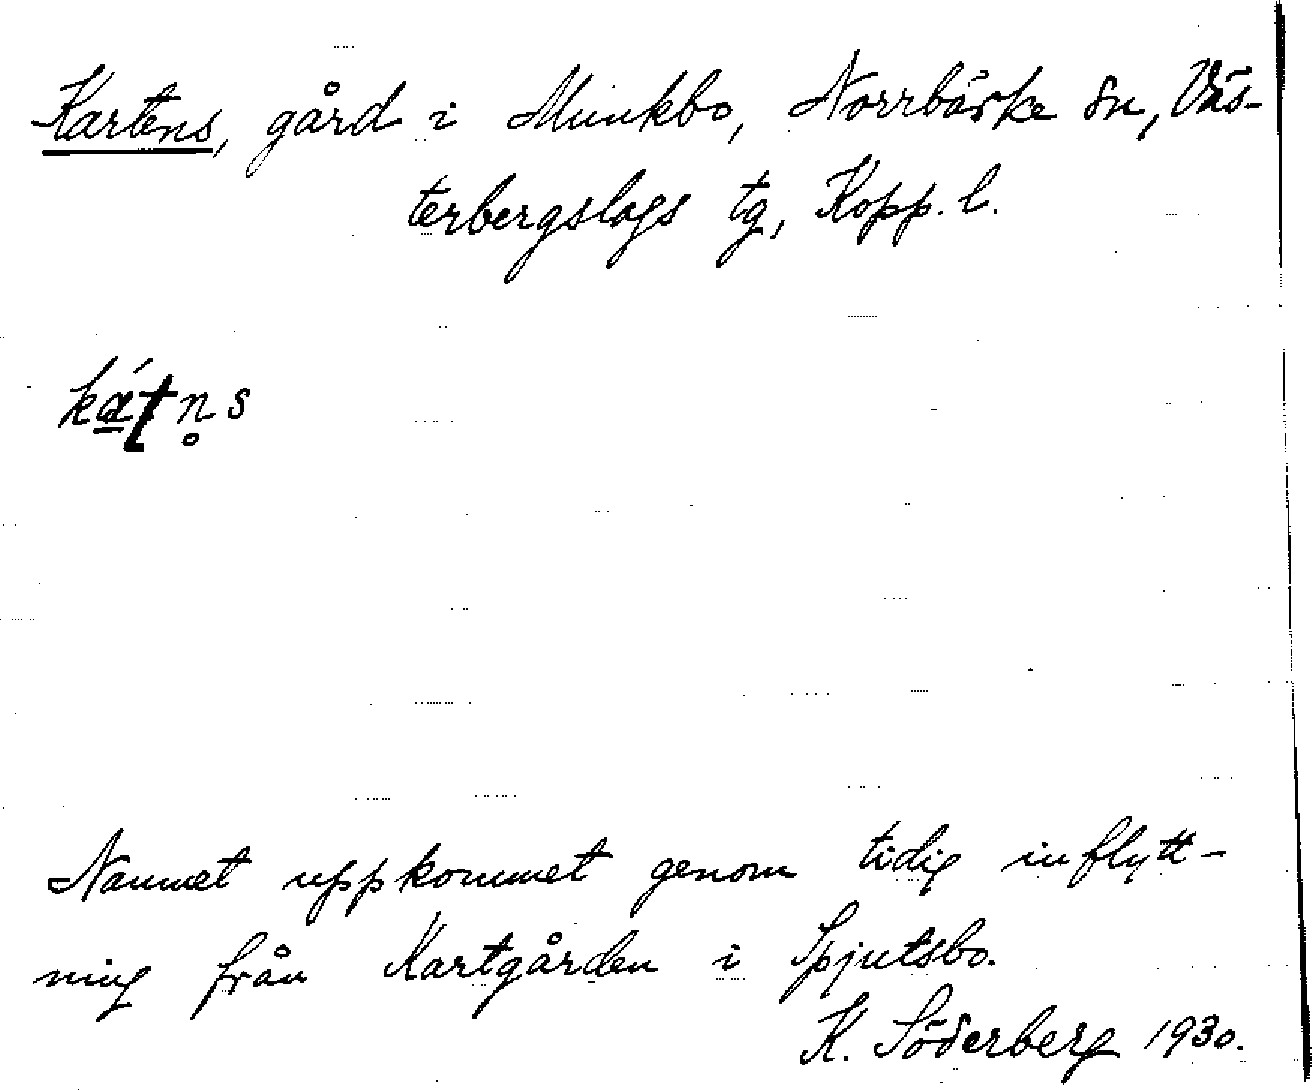 Kartens, gård i Munkbo, Norrbärke sn, Väs-
terbergslags tg, Kopp. l.
Namnet uppkommet genom tidig inflytt-
ning från Kartgården i Spjutsbo.
K. Söderberg 1930.